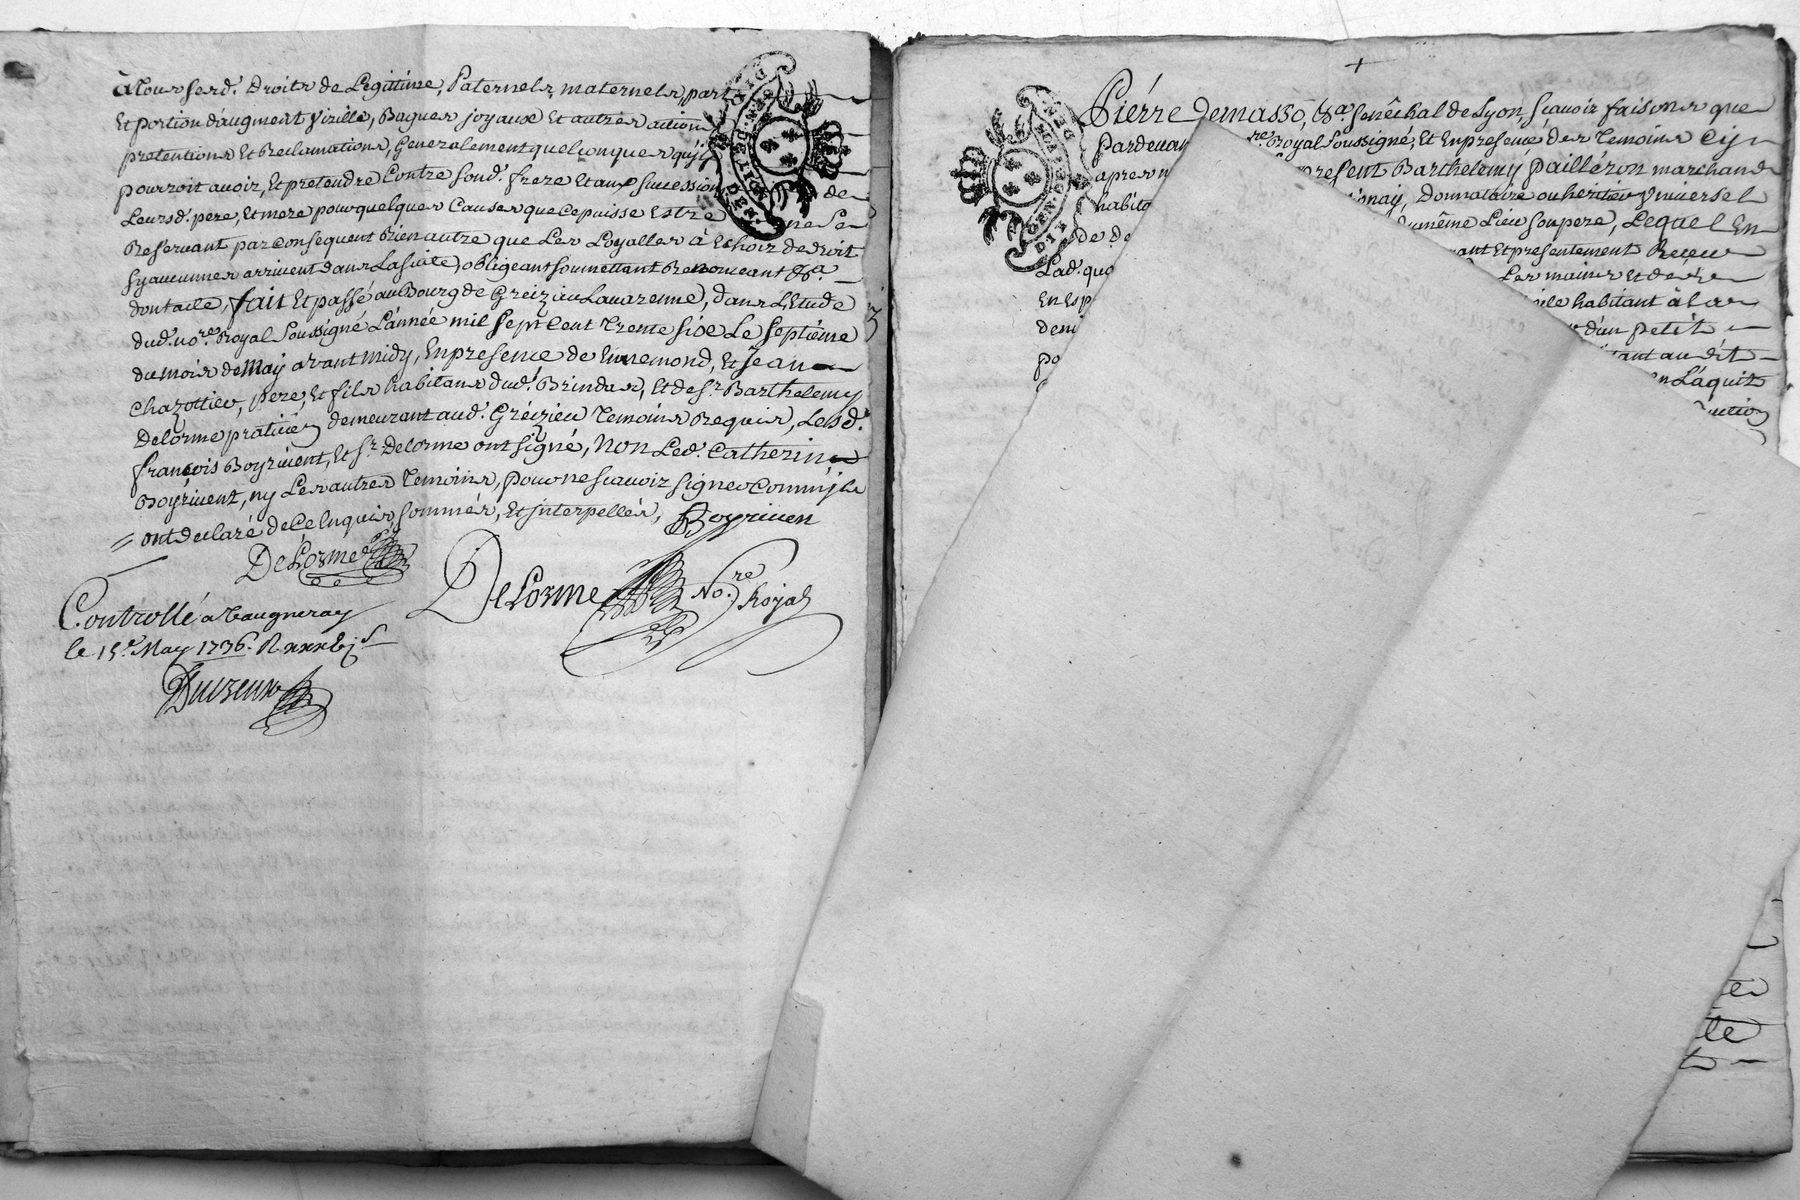 à Tous sesd. Droits de Legittime, Paternels, maternels, part
Et portion d'augment Virille, Bagues joyaux Et autres actions
pretentions Et Reclamations, Generalement quelconques qu'il
pourroit avoir, Et pretendre Contre sond. frere Et aux succession de
Leursd. pere, Et mere pour quelques Causes que Ce puisse Estre ne Se
Reservant par Consequent Rien autre que Les Loyalles à Echoir de droit
sy aucunes arrivent dans La suite, obligeant soumettant Renonceant &a.
dont acte, fait Et passé au Bourg de Greizieu Lavarenne, dans L'Etude
dud. no.re Royal Soussigné L'année mil sept Cent Trente six Le septième
du mois de May avant midy, En presence de Ennemond, Et Jean
Chazottier, pere, Et fils habitans dud. Brindas, Et de sr. Barthelemy
Delorme praticien demeurant aud. Gréizieu Temoins Requis, Lesd.
françois Boyrivent, Et Sr. Delorme ont signé, Non Lad. Catherine
Boyrivent, ny Les autres Temoins, pour ne scavoir signer Comm'ils
ont declaré de Ce Enquis, Sommés, Et Interpellés, Boyriven
DeLorme
DeLorme No.re Royal
Controllé a Vaugneray
le 15e. May 1736. R
+
Pièrre Demasso, &a. Senêchal de Lyon, scavoir faisons que
Pardevant re. Royal Soussigné, Et En presence des Temoins Cy
apres present Barthelemy Pailléron marchand
habita Donnataire ou heritier Universel
de de du même Lieu son pere, Lequel En
Lad. qua ant Et presentement Reçeu
En Esp Les mains Et de
dem habitant à La
po d'un petit
tant au dit
en L'aquit